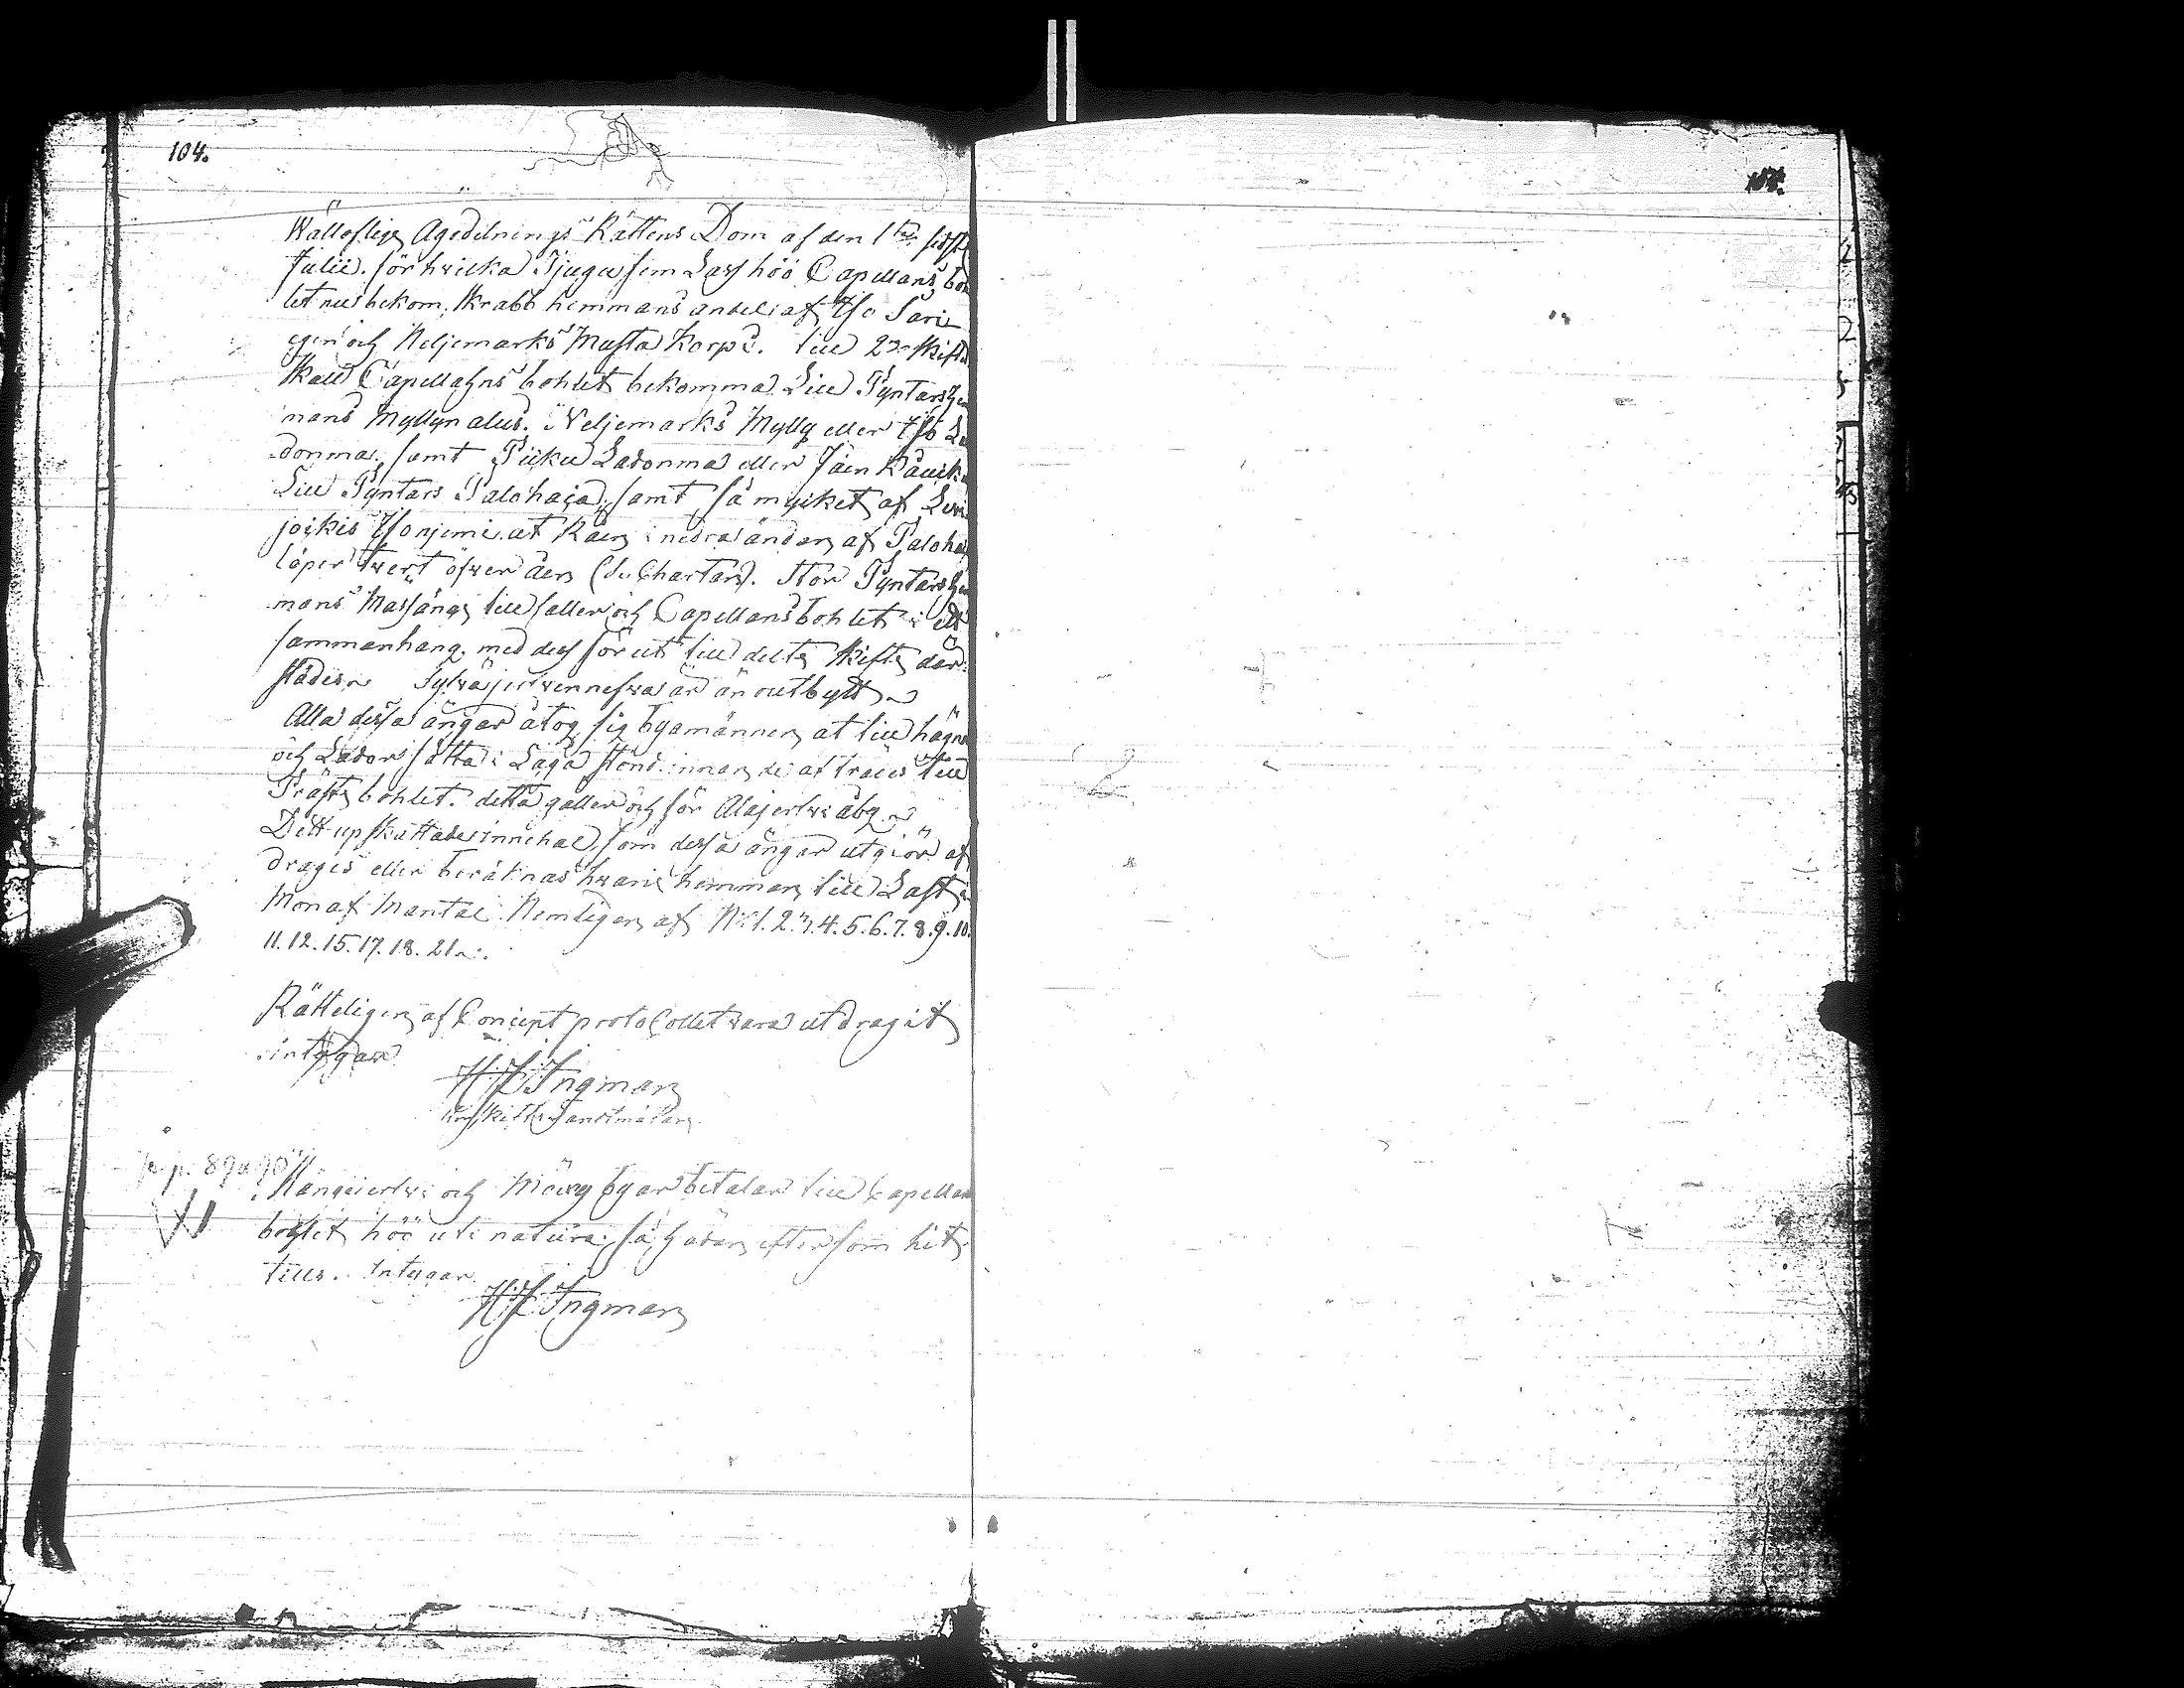 104.
Wälloflige Ägodelnings Rättens Dom af den 1ta sidst
Julii. för hwilka Tjugu fem Lass höö Capellans boh
let nu bekom, Krabb hemmans andel af Iso Sari
egen och Neljemarks Musta Korpi. till 2ne skifte
skall Capellahns bohlet bekomma Lill Pyntars hem
mans Myllyn alus. Neljemarks Mylly eller Iso La
donma, samt Picku Ladonma eller
Lill Pyntars Palohaja, samt så mycket af
joikis Isonjemi at Råen i nedra ändan af Paloha
löper twert öfwer den (Su Chartan). Stor Pyntars hem
mans Mass äng till faller och Capellans bohlet i ett
sammanhang med dess för ut till delte skifte där
städes är outbytt
Alla dessa ängar åtog sig byamännen at till hägna
och Lador sätta i Laga stånd innan de aftrades till
Präste bohlet. detta gäller och för Alajerwi åbo
Dett upskattade innehål, som dessa ängar utgiör af
drages eller beräknas hwarie hemman till Last i
Mon af Mantal Nemligen af No. 1. 2. 3. 4. 5. 6. 7. 8. 9. 10.
11. 12. 15. 17. 18. 21.
Rätteligen af Concept protocollet wara utdragit
intygar
H: J: Ingman
Landtmätare
p. 89 90
och by ar betalar till Capellan
bohlet höö uti natura, så hädan efter som hit
tills. Intygar
H: J: Ingman